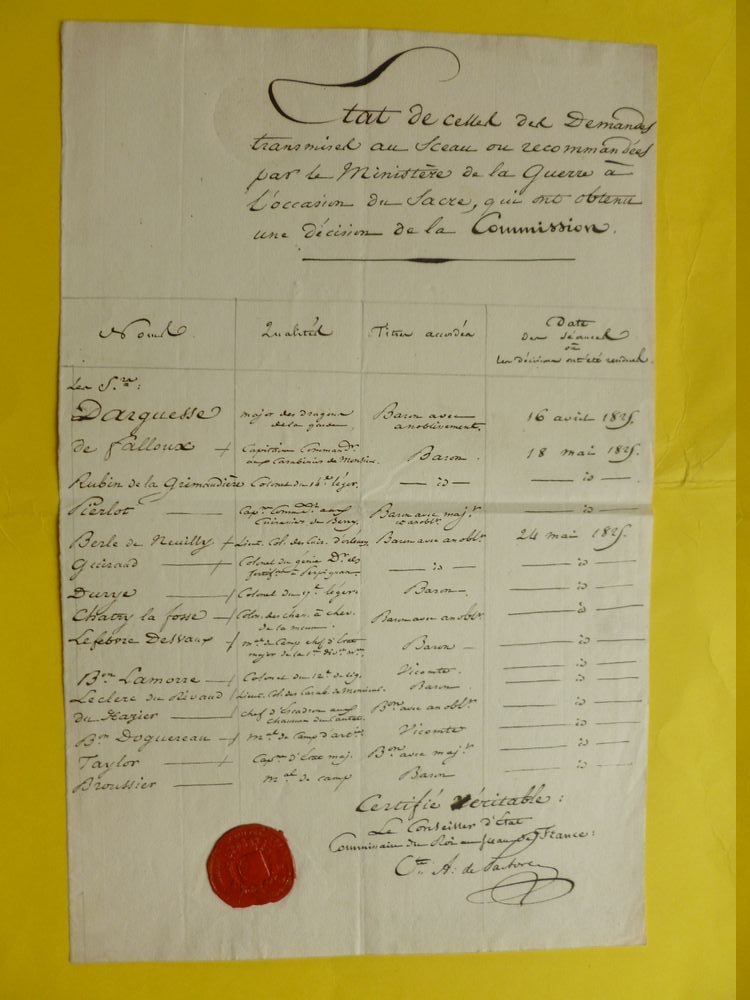 Etat de celles des Demandes
transmises au Sceau ou recommandées
par le Ministère de la Guerre à
l'occasion du Sacre, qui ont obtenu
une décision de la Commission.
Noms. Qualités Titres accordés Date des séances où les décisions ont été rendues.
Les S.rs:
Darguesse major des dragons de la garde, Baron avec anoblissement. 16 avril 1825.
de Falloux + Capitaine Command.t aux Carabiniers de Monsieur Baron. 18 mai 1825.
Rubin de la Grimaudière Colonel du 16.e léger. — id — — id —
Pierlot — Cap.ne Comm.dt aux Cuirassiers de Berry. Baron avec maj.t et anobl.t — id —
Berle de Neuilly + Lieut. Col. des Cuirs. d'orléans, Baron avec anobl.t 24 mai 1825.
Guiraud — Colonel du génie D.r des fortif.ns à Perpignan. — id — — id —
Durye — Colonel du 17.e léger. Baron. — id —
Chatry la fosse — Colon. des chas. à chev. de la meuse. Baron avec anobl.t — id —
Lefebvre Desvaux + m.al de Camp chef d'état major de la 1.re div.on m.re Baron — — id —
B.on Lamorre — Colonel du 12.e de lig. Vicomte. — id —
Leclerc du Rivaud Lieut. Col. des Carab. de Monsieur. Baron — — id —
du Hazier — chef d'Escadron aux chasseurs du Cantal. B.on avec anobl.t — id —
B.on Doguereau — M.al de Camp d'art.ie Vicomte — id —
Taylor — Cap.ne d'Etat maj. B.on avec maj.t — id —
Broussier — M.al de camp Baron — id —
Certifié Véritable:
Le Conseiller d'Etat
Commissaire du Roi au Sceau de France:
C.te A: de Pastoret